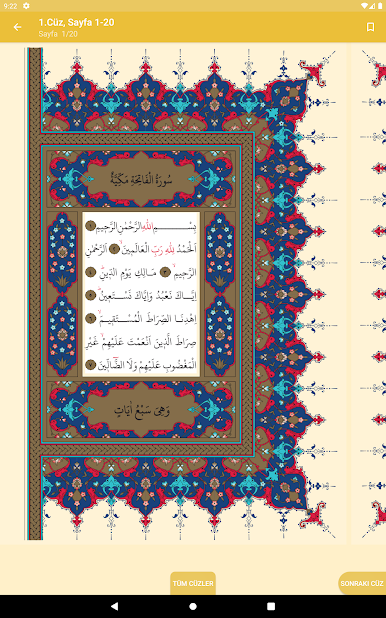 9:22
1.Cüz, Sayfa 1-20
Sayfa 1/20
سُورَةُ الْفَاتِحَةِ مَكِّيَّةٌ
بِسْــــمِ اللهِ الرَّحْمٰنِ الرَّحِيمِ ١
اَلْحَمْدُ لِلّٰهِ رَبِّ الْعَالَمِينَۙ ٢ اَلرَّحْمٰنِ
الرَّحِيمِۙ ٣ مَالِكِ يَوْمِ الدِّينِۜ ٤
اِيَّاكَ نَعْبُدُ وَاِيَّاكَ نَسْتَعِينُۜ ٥
اِهْدِنَا الصِّرَاطَ الْمُسْتَقِيمَۙ ٦
صِرَاطَ الَّذِينَ اَنْعَمْتَ عَلَيْهِمْۙ غَيْرِ
الْمَغْضُوبِ عَلَيْهِمْ وَلَا الضَّٓالِّينَ ٧
وَهِيَ سَبْعُ اٰيَاتٍ
TÜM CÜZLER
SONRAKİ CÜZ